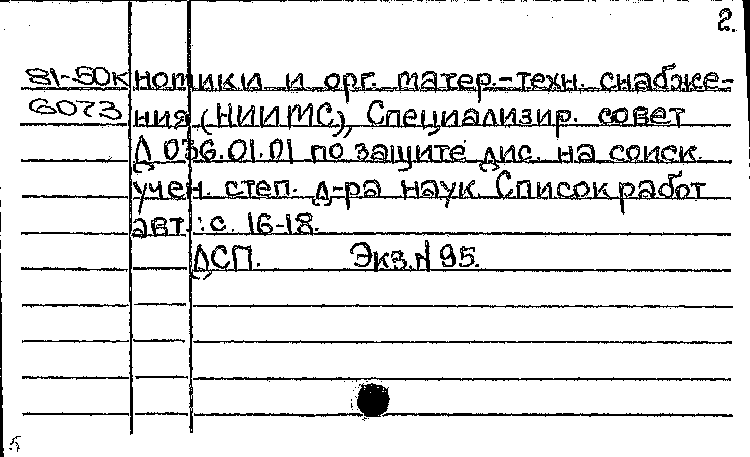 2.
81-50к номики и орг. матер.-техн. снабже-
6073 ния (НИИМС), Специализир. совет
Д 036.01.01 по защите дис. на соиск.
учен. степ. д-ра наук. Список работ
авт.: с. 16-18.
ДСП. Экз. N 95.